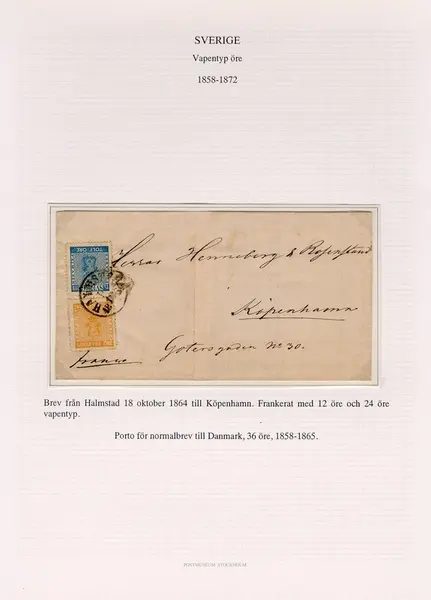 SVERIGE
Vapentyp öre
1858-1872
TOLF ÖRE
Herrar Henneberg & Rosenstand
Köpenhamn
Gotersgaden No 30.
franco
Brev från Halmstad 18 oktober 1864 till Köpenhamn. Frankerat med 12 öre och 24 öre
vapentyp.
Porto för normalbrev till Danmark, 36 öre, 1858-1865.
POSTMUSEUM STOCKHOLM